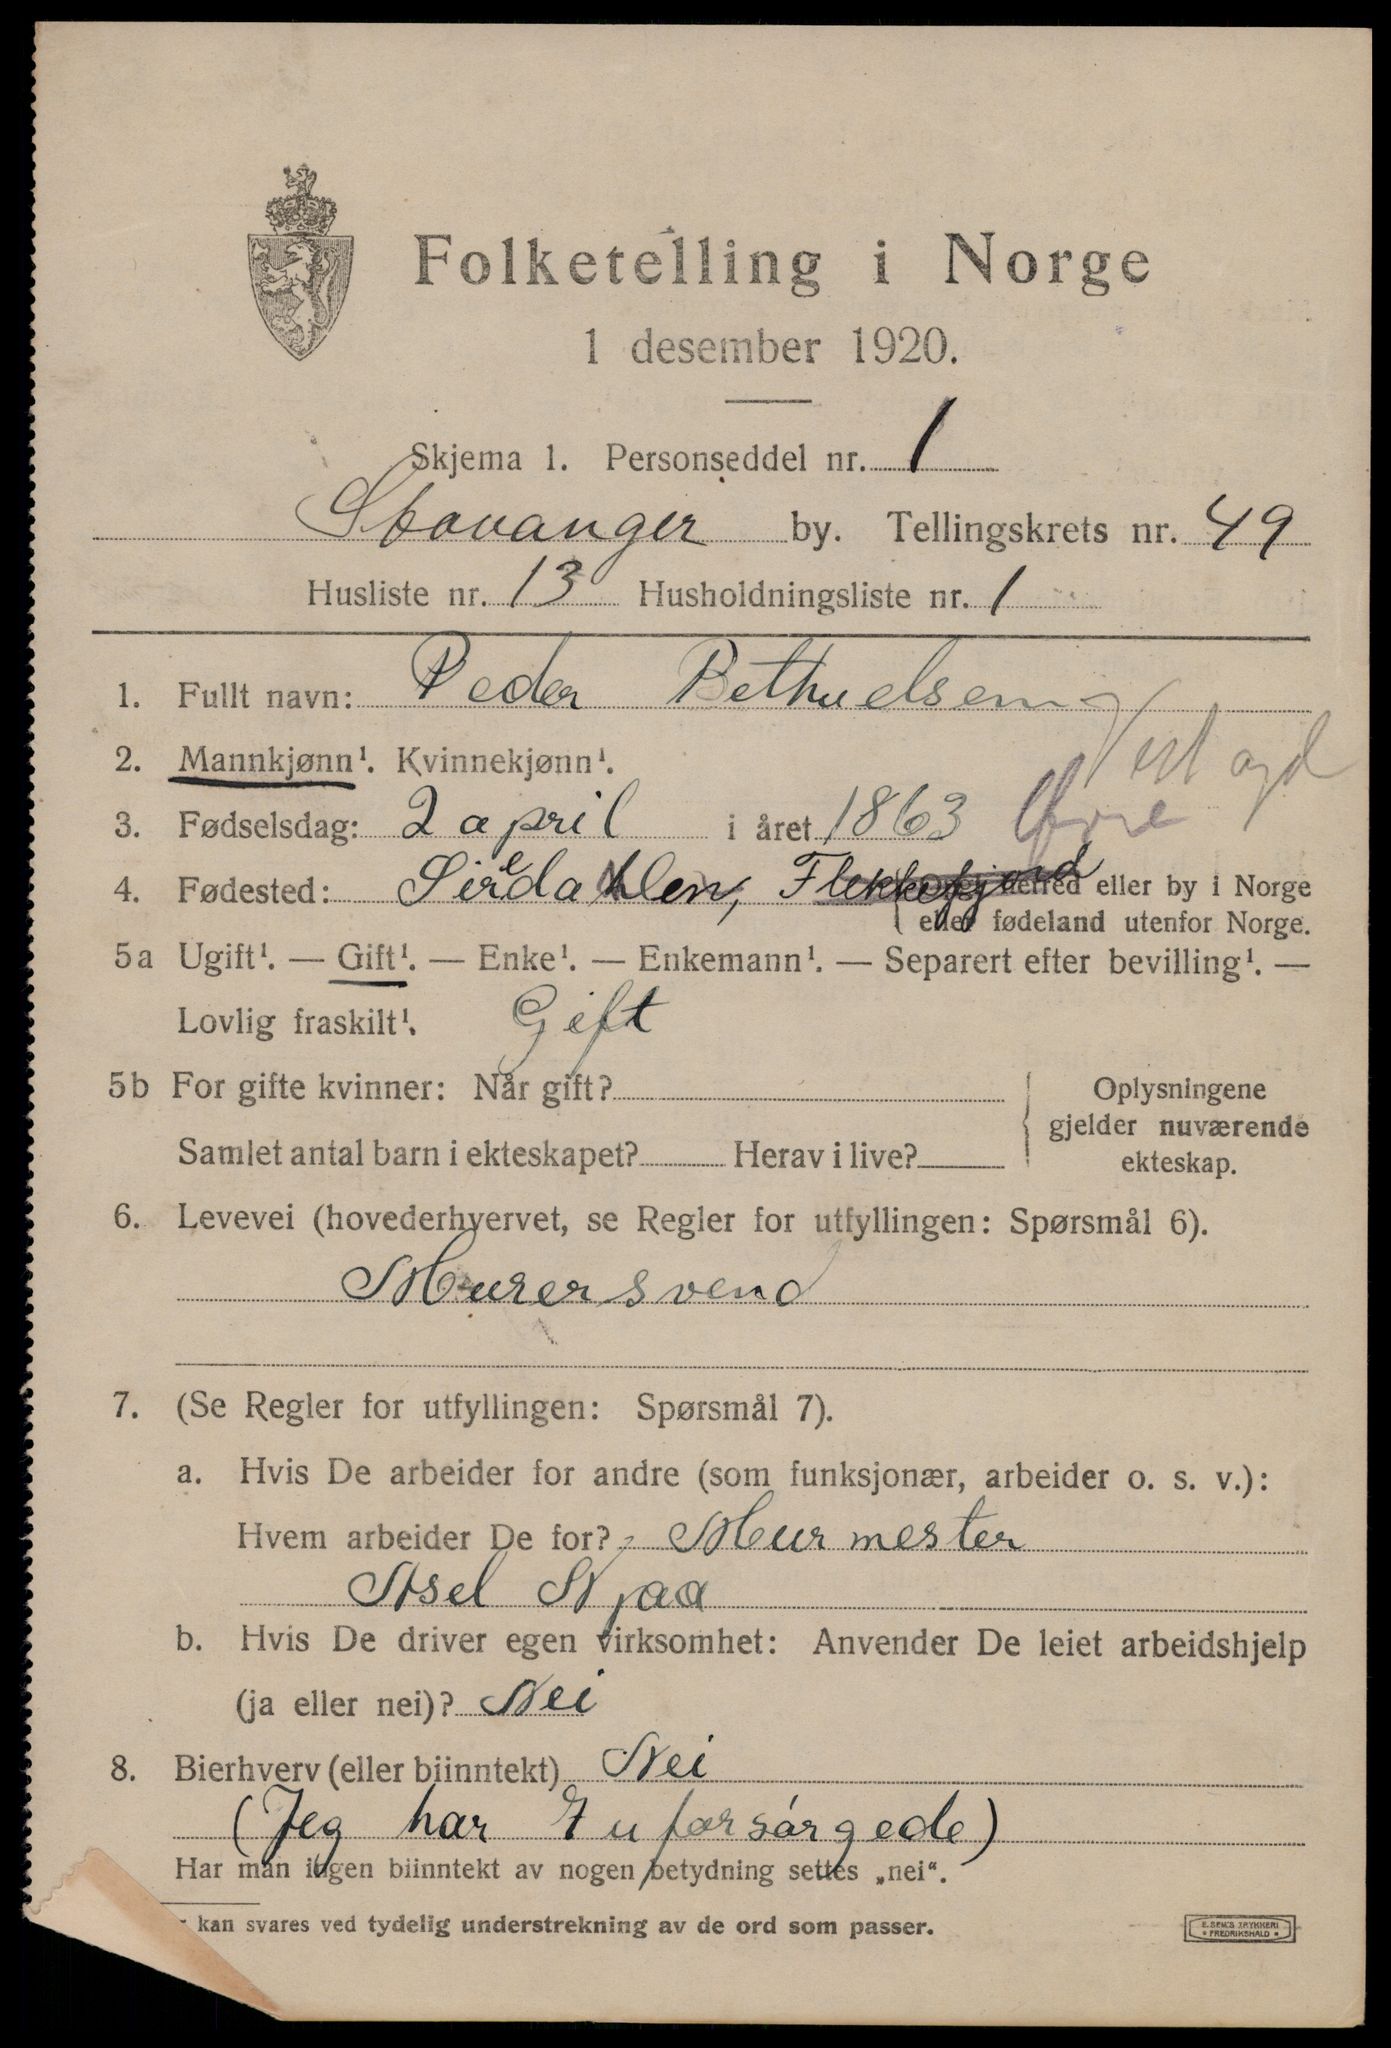 Folketelling i Norge
1 desember 1920.
Skjema 1. Personseddel nr. 1
Stavanger by. Tellingskrets nr. 49
Husliste nr. 13 Husholdningsliste nr. 1
1. Fullt navn: Peder Bethuelsen
Vest agd
2. Mannkjønn¹. Kvinnekjønn¹.
3. Fødselsdag: 2 april i året 1863 Øvre
4. Fødested: Siredalen, Flekkefjord herred eller by i Norge
eller fødeland utenfor Norge.
5a Ugift¹. — Gift¹. — Enke¹. — Enkemann¹. — Separert efter bevilling¹. —
Lovlig fraskilt¹. Gift
5b For gifte kvinner: Når gift?
Samlet antal barn i ekteskapet? Herav i live?
Oplysningene
gjelder nuværende
ekteskap.
6. Levevei (hovederhvervet, se Regler for utfyllingen: Spørsmål 6).
Murersvend
7. (Se Regler for utfyllingen: Spørsmål 7).
a. Hvis De arbeider for andre (som funksjonær, arbeider o. s. v.):
Hvem arbeider De for? Murmester
Asel Njaa
b. Hvis De driver egen virksomhet: Anvender De leiet arbeidshjelp
(ja eller nei)? Nei
8. Bierhverv (eller biinntekt) Nei
(Jeg har 7 uforsørgede)
Har man ingen biinntekt av nogen betydning settes „nei“.
kan svares ved tydelig understrekning av de ord som passer.
E. SEM'S TRYKKERI
FREDRIKSHALD